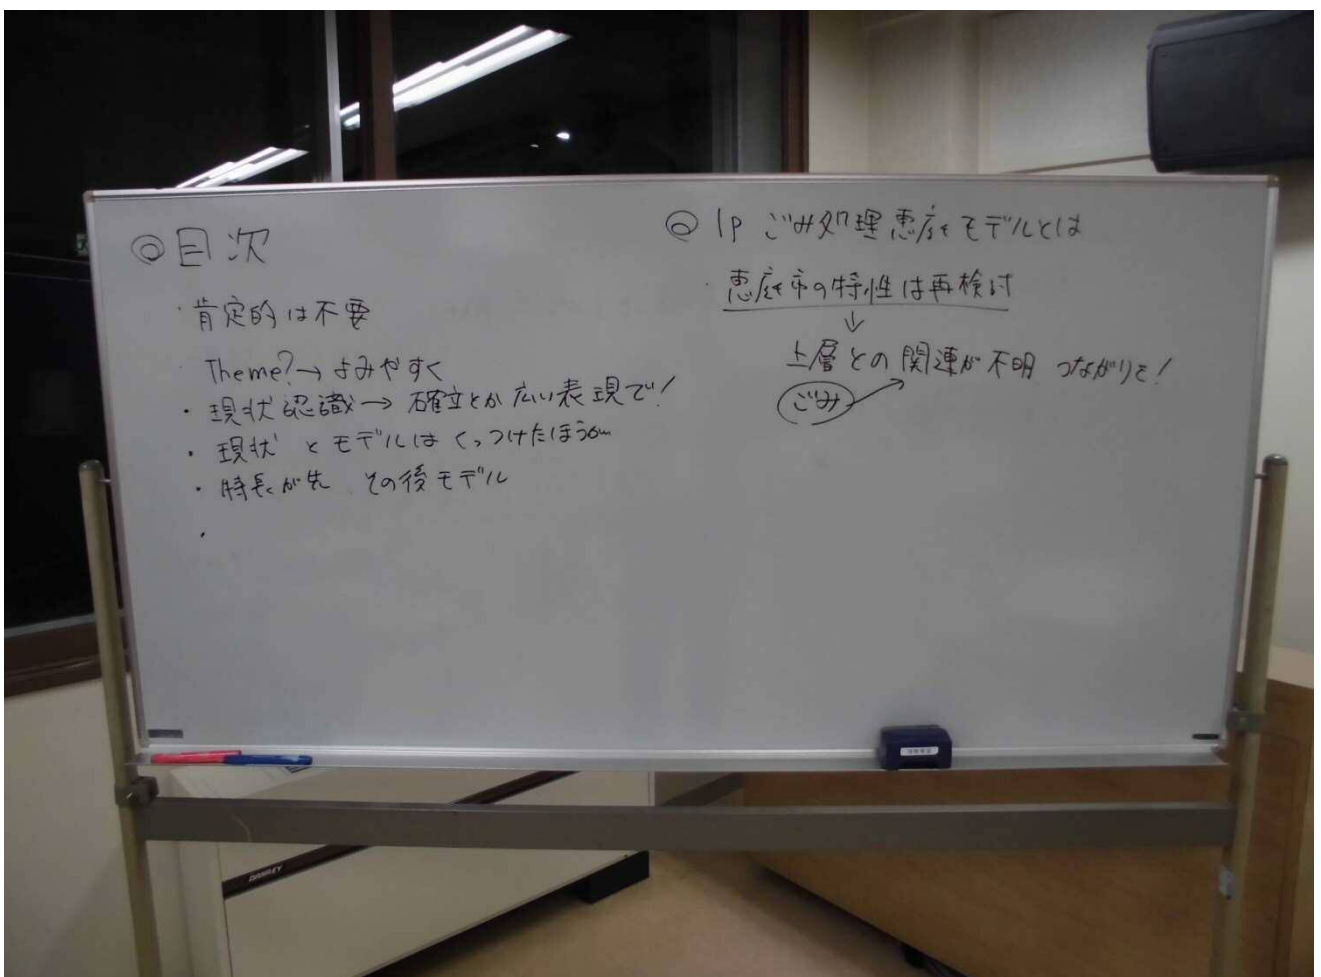 ◎目次
・肯定的は不要
Theme?→よみやすく
・現状認識→確立とか広い表現で!
・現状とモデルはくっつけたほうが
・特長が先 その後モデル
・
◎1p ごみ処理恵庭モデルとは
・恵庭市の特性は再検討
↓
上層との関連が不明 つながりを!
ごみ